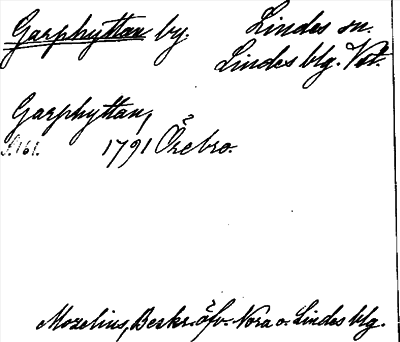 Garphyttan by. Lindes sn.
Lindes blg. Vst.
Garphyttan,
S. 161. 1791 Örebro.
Mozelius, Beskr. öfv. Nora o. Lindes blg.